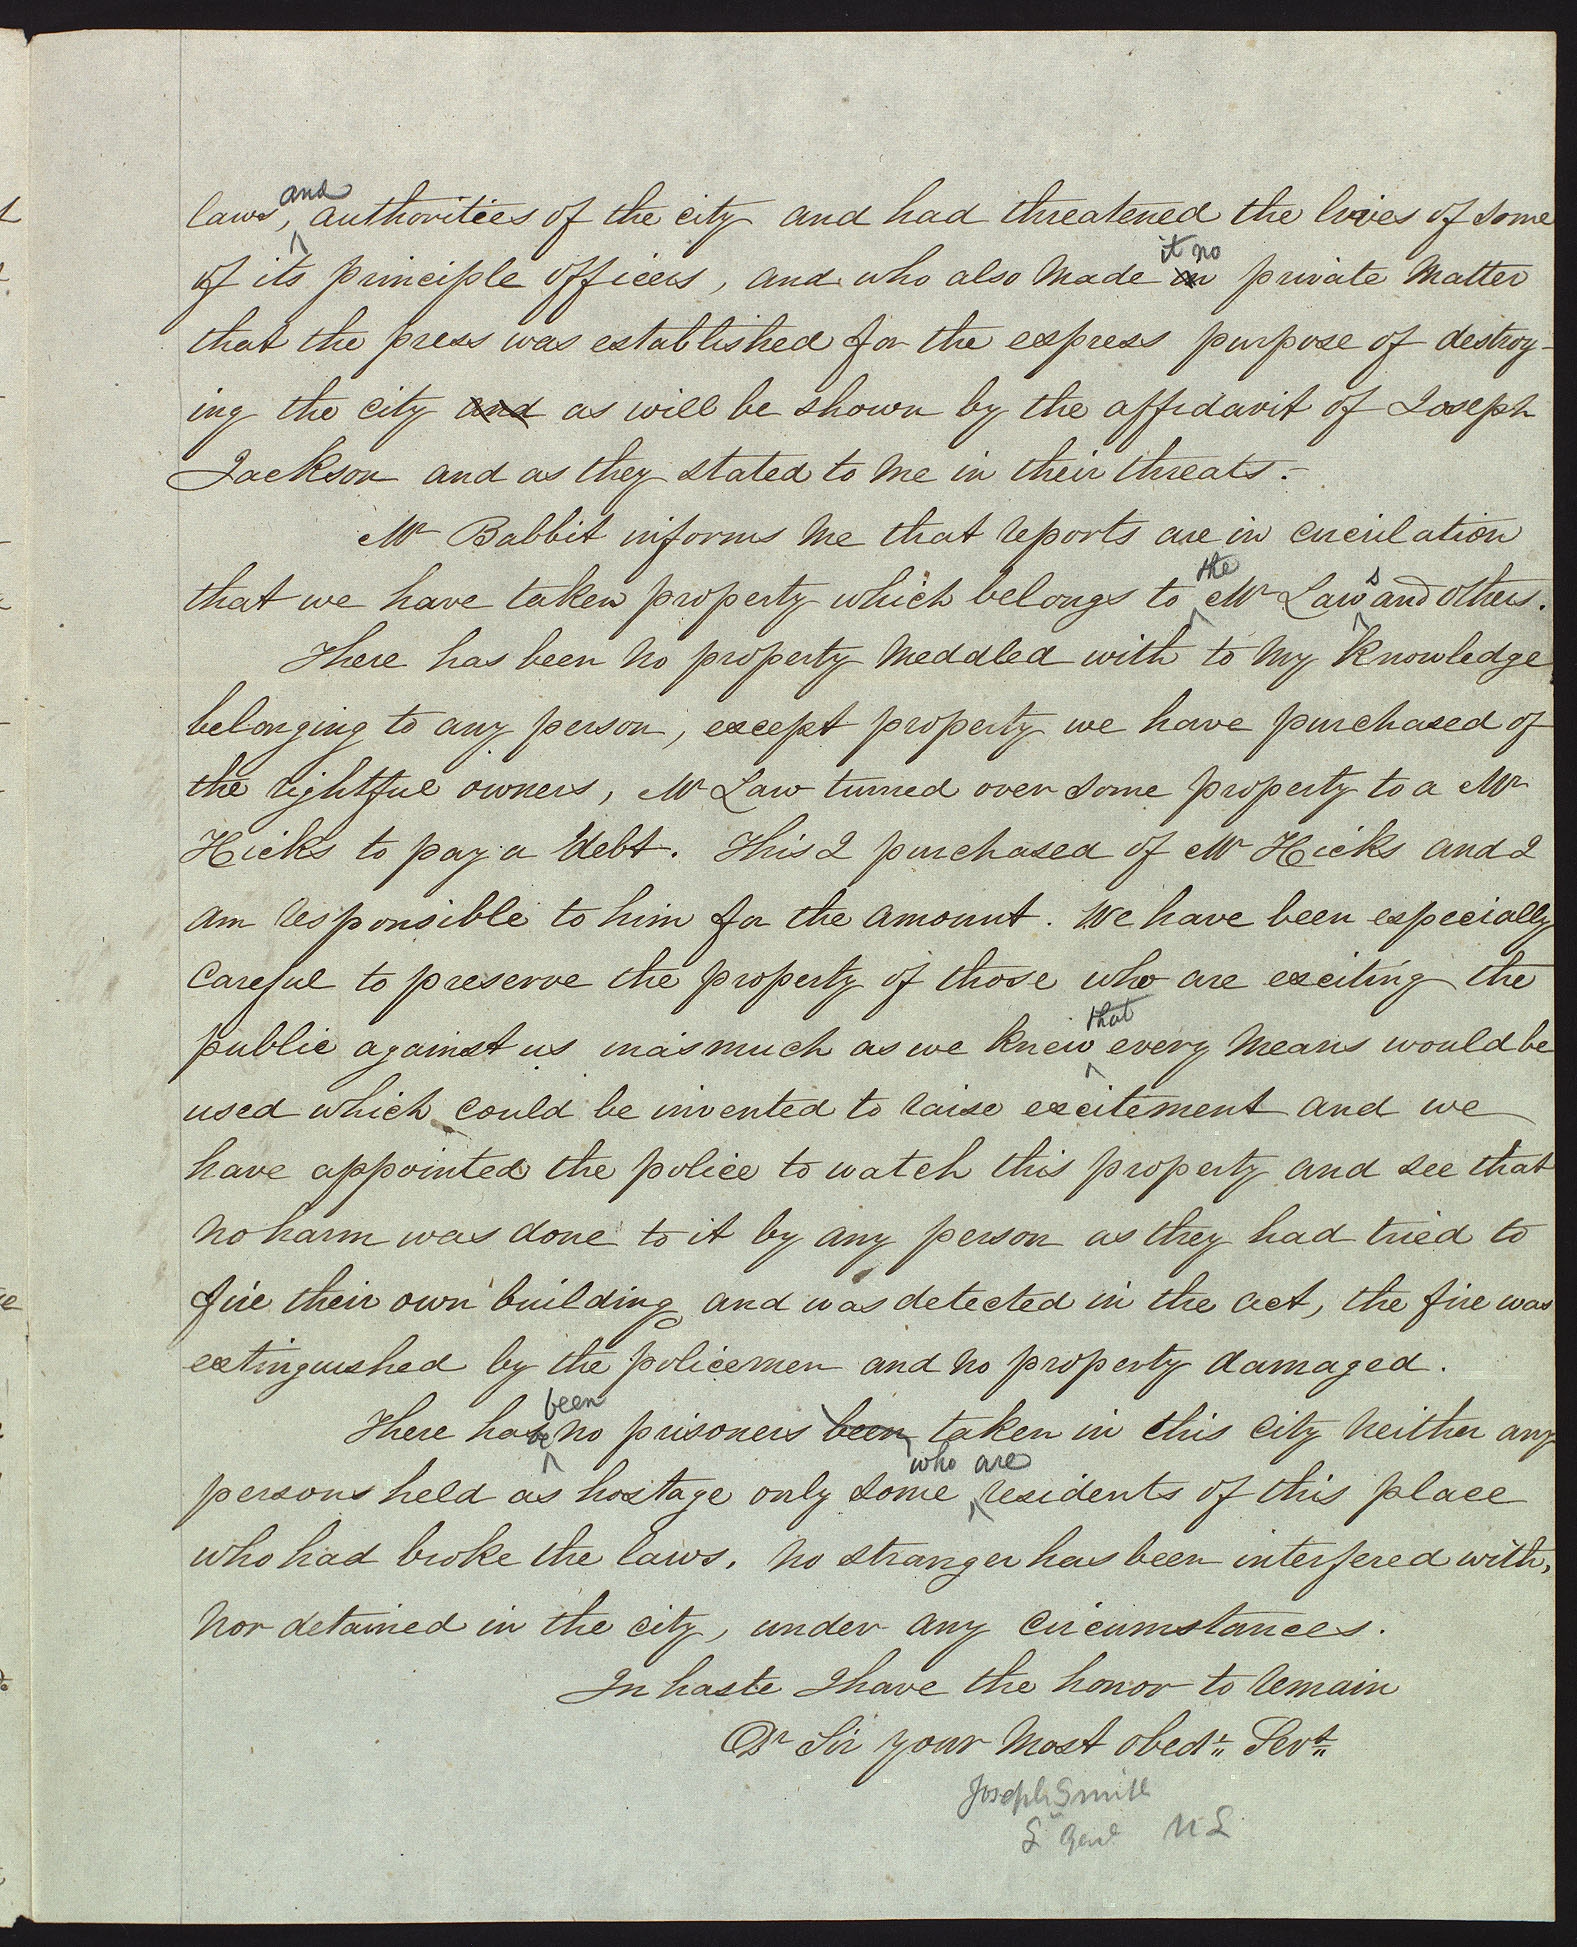 laws, and authorities of the city and had threatened the lives of some
of its principle officers, and who also made in it no private matter
that the press was established for the express purpose of destroy-
ing the city and as will be shown by the affidavit of Joseph
Jackson and as they stated to me in their threats.-
Mr Babbit informs me that reports are in circulation
that we have taken property which belongs to the Mr Laws and others.
There has been no property meddled with to my knowledge
belonging to any person, except property we have purchased of
the rightful owners, Mr Law turned over some property to a Mr
Hicks to pay a debt. This I purchased of Mr Hicks and I
am responsible to him for the amount. We have been especially
careful to preserve the property of those who are exciting the
public against us inasmuch as we knew that every means would be
used which could be invented to raise excitement and we
have appointed the police to watch this property and see that
no harm was done to it by any person as they had tried to
fire their own building and was detected in the act, the fire was
extinguished by the policemen and no property damaged.
There has been no prisoners been taken in this city neither any
persons held as hostage only some who are residents of this place
who had broke the laws. No stranger has been interfered with,
nor detained in the city, under any circumstances.
In haste I have the honor to remain
Dr Sir your most obedt. Servt.
Joseph Smith
L Genl N L